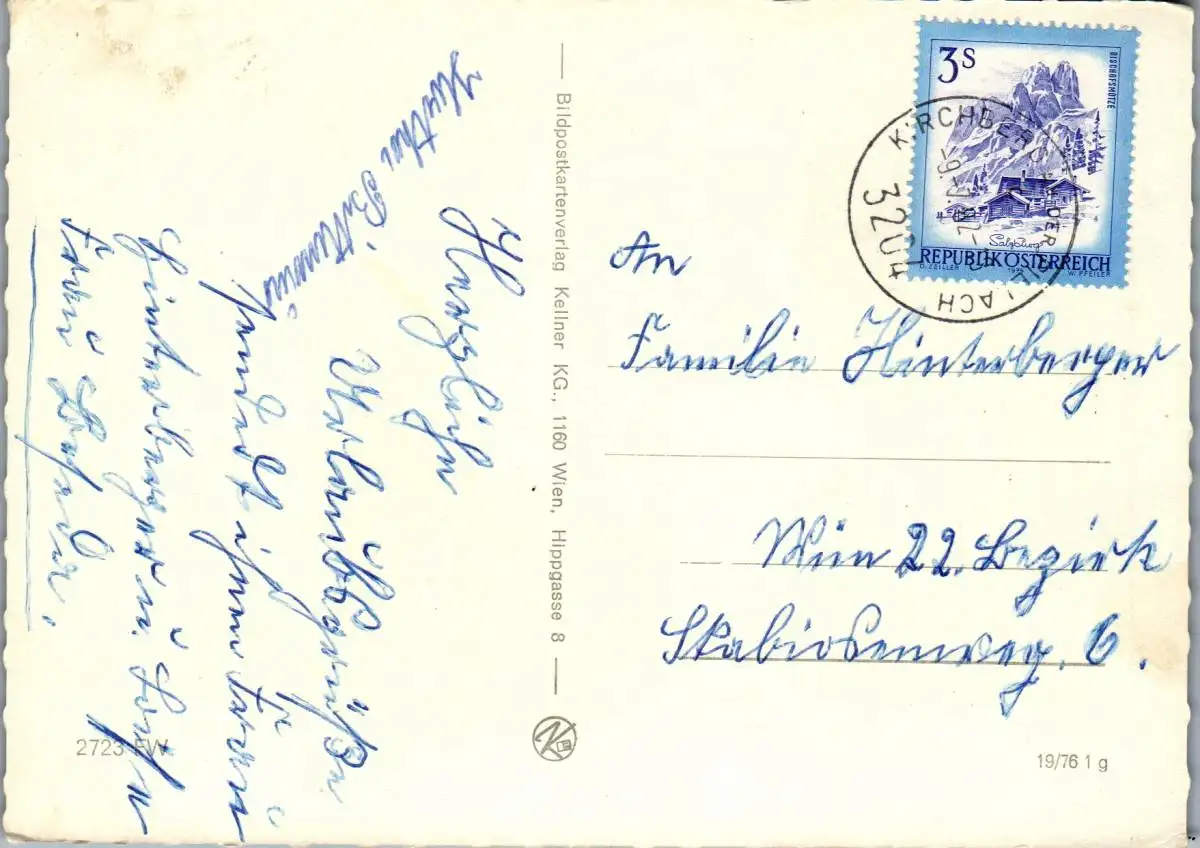 Herzliche
Urlaubsgrüße
sendet ihnen Frau
Hinterberger u.
Frau
Bildpostkartenverlag Kellner KG., 1160 Wien, Hippgasse 8
2723 FW
3 S
BISCHOFSMÜTZE
Salzburg
REPUBLIK ÖSTERREICH
O. ZEILLER 1974 W. PFEILER
KIRCHBERG AN DER PIELACH
3204
An
Familie Hinterberger
Wien 22. Bezirk
Skabiosenweg. 6.
19/76 1 g